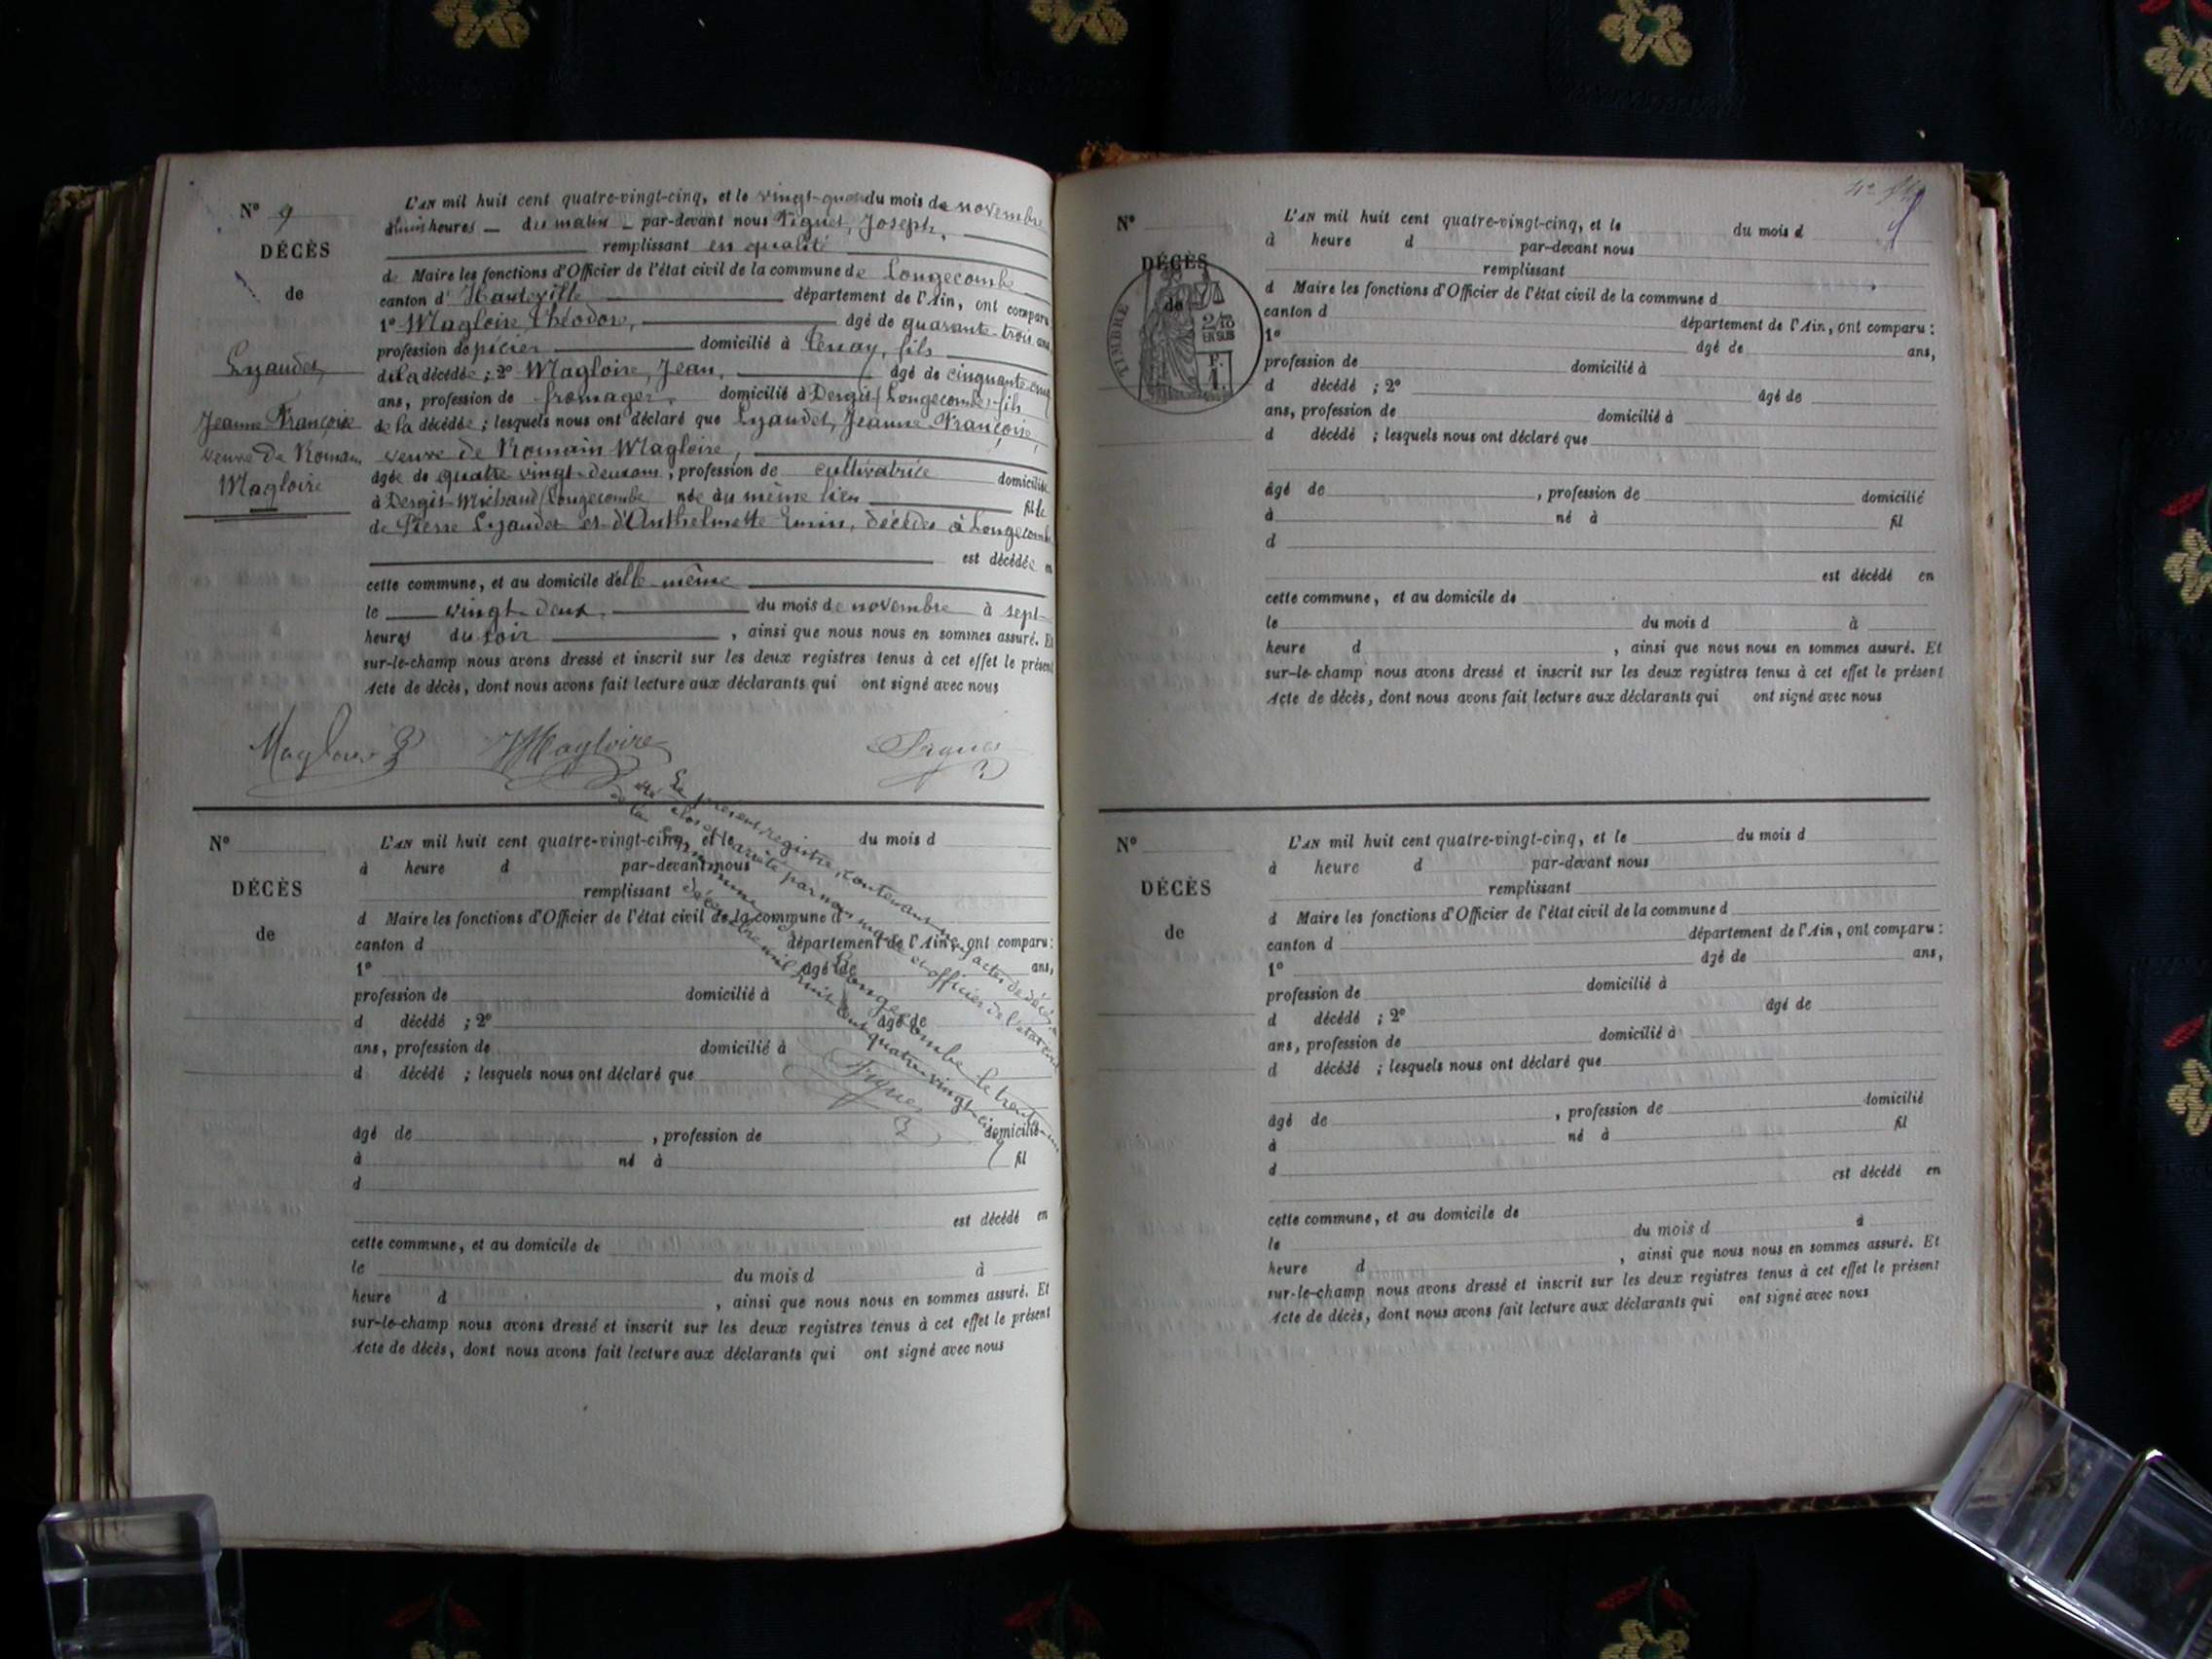 N° 9
DÉCÈS
de
Lyaudet,
Jeanne Françoise
veuve de Romain
Magloire
L'AN mil huit cent quatre-vingt-cinq, et le du mois de novembre
heures du matin par-devant nous Piguet, Joseph,
remplissant en qualité
de Maire les fonctions d'Officier de l'état civil de la commune de Longecombe
canton d'Hauteville département de l'Ain, ont comparu
1° Magloire, Théodore, âgé de quarante trois ans,
profession de domicilié à Tenay, fils
de la décédée ; 2° Magloire, Jean, âgé de cinquante cinq
ans, profession de fromager, domicilié à Dergit (Longecombe) fils
de la décédée ; lesquels nous ont déclaré que Lyaudet, Jeanne Françoise,
veuve de Romain Magloire,
âgée de quatre vingt-deux ans, profession de cultivatrice domiciliée
à Dergit-Michaud (Longecombe née au même lieu fille
de Pierre Lyaudet et d'Anthelmette Emin, décédés à Longecombe
est décédée en
cette commune, et au domicile d'elle-même
le vingt-deux, du mois de novembre à sept
heures du soir , ainsi que nous nous en sommes assuré. Et
sur-le-champ nous avons dressé et inscrit sur les deux registres tenus à cet effet le présent
Acte de décès, dont nous avons fait lecture aux déclarants qui ont signé avec nous
Magloire JMagloire Piguet
Le présent registre, contenant neuf actes de décès,
a été clos et arrêté par nous maire et officier de l'état civil
de la commune de Longecombe le trente un
décembre mil huit cent quatre-vingt-cinq
Piguet
N°
DÉCÈS
de
L'AN mil huit cent quatre-vingt-cinq, et le du mois d
à heure d par-devant nous
remplissant
d Maire les fonctions d'Officier de l'état civil de la commune d
canton d département de l'Ain, ont comparu :
1° âgé de ans,
profession de domicilié à
d décédé ; 2° âgé de
ans, profession de domicilié à
d décédé ; lesquels nous ont déclaré que
âgé de , profession de domicilié
à né à fil
d
est décédé en
cette commune, et au domicile de
le du mois d à
heure d , ainsi que nous nous en sommes assuré. Et
sur-le-champ nous avons dressé et inscrit sur les deux registres tenus à cet effet le présent
Acte de décès, dont nous avons fait lecture aux déclarants qui ont signé avec nous
N°
DÉCÈS
de
TIMBRE
2/10
EN SUS
F.
1.
L'AN mil huit cent quatre-vingt-cinq, et le du mois d
à heure d par-devant nous
remplissant
d Maire les fonctions d'Officier de l'état civil de la commune d
canton d département de l'Ain, ont comparu :
1° âgé de ans,
profession de domicilié à
d décédé ; 2° âgé de
ans, profession de domicilié à
d décédé ; lesquels nous ont déclaré que
âgé de , profession de domicilié
à né à fil
d
est décédé en
cette commune, et au domicile de
le du mois d à
heure d , ainsi que nous nous en sommes assuré. Et
sur-le-champ nous avons dressé et inscrit sur les deux registres tenus à cet effet le présent
Acte de décès, dont nous avons fait lecture aux déclarants qui ont signé avec nous
N°
DÉCÈS
de
L'AN mil huit cent quatre-vingt-cinq, et le du mois d
à heure d par-devant nous
remplissant
d Maire les fonctions d'Officier de l'état civil de la commune d
canton d département de l'Ain, ont comparu :
1° âgé de ans,
profession de domicilié à
d décédé ; 2° âgé de
ans, profession de domicilié à
d décédé ; lesquels nous ont déclaré que
âgé de , profession de domicilié
à né à fil
d
est décédé en
cette commune, et au domicile de
le du mois d à
heure d , ainsi que nous nous en sommes assuré. Et
sur-le-champ nous avons dressé et inscrit sur les deux registres tenus à cet effet le présent
Acte de décès, dont nous avons fait lecture aux déclarants qui ont signé avec nous